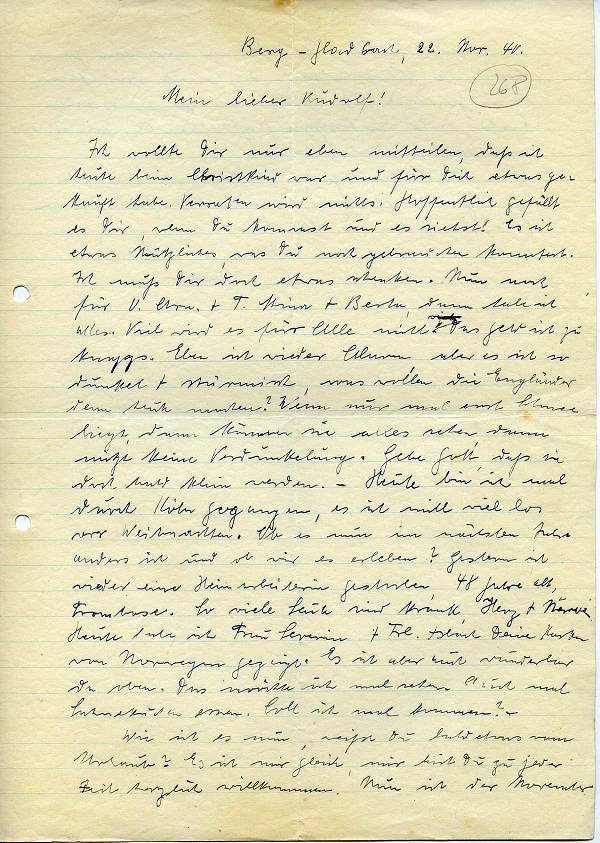 Berg-Gladbach, 22. Nov. 40.
268
Mein lieber Rudolf!
Ich wollte Dir nur eben mitteilen, daß ich
heute beim Christkind war und für Dich etwas ge-
kauft habe. Verraten wird nichts. Hoffentlich gefällt
es Dir, wenn Du kommst und es siehst! Es ist
etwas Nützliches, was Du noch gebrauchen konntest.
Ich muß Dir doch etwas schenken. Nun noch
für V. Chr. + T. Mina + Berta, dann habe ich
alles. Viel wird es für Alle nicht. Das Geld ist zu
knapp. Eben ist wieder Alarm, aber es ist so
dunkel + stürmisch, was wollen die Engländer
denn heute machen? Wenn nur mal erst Schnee
liegt, dann können sie alles sehen, dann
nützt keine Verdunkelung. Gebe Gott, daß sie
doch bald klein werden. – Heute bin ich mal
durch Köln gegangen, es ist nicht viel los
vor Weihnachten. Ob es nun im nächsten Jahre
anders ist und ob wir es erleben? Gestern ist
wieder eine Heimarbeiterin gestorben, 48 Jahre alt,
Trombose. So viele Leute sind krank, Herz + Nerven.
Heute habe ich Frau Severin + Frl. Deine Karten
von Norwegen gezeigt. Es ist aber auch wunderbar
da oben. Das möchte ich mal sehen. Auch mal
essen. Soll ich mal kommen? –
Wie ist es nun, weißt Du bald etwas vom
Urlaub? Es ist mir gleich, mir bist Du zu jeder
Zeit herzlich willkommen. Nun ist der November